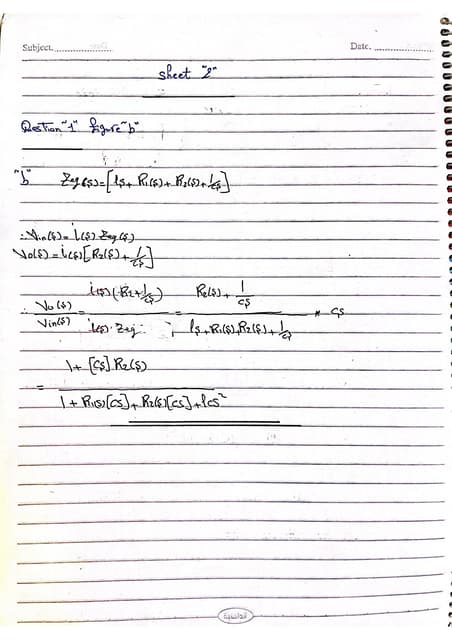 Subject....................
Date. ....................
sheet "2"
Question "1" figure "b"
"b" Zeq(s)=[ls+R1(s)+R2(s)+1/cs]
∴Vin(s)=i(s) Zeq(s)
Vo(s)=i(s)[R2(s)+1/cs]
∴ Vo(s)/Vin(s) = i(s)(R2+1/cs)/i(s).Zeq = (R2(s)+1/cs)/(ls+R1(s)+R2(s)+1/cs) * cs
= (1+[cs]R2(s))/(1+R1(s)[cs]+R2(s)[cs]+lcs²)